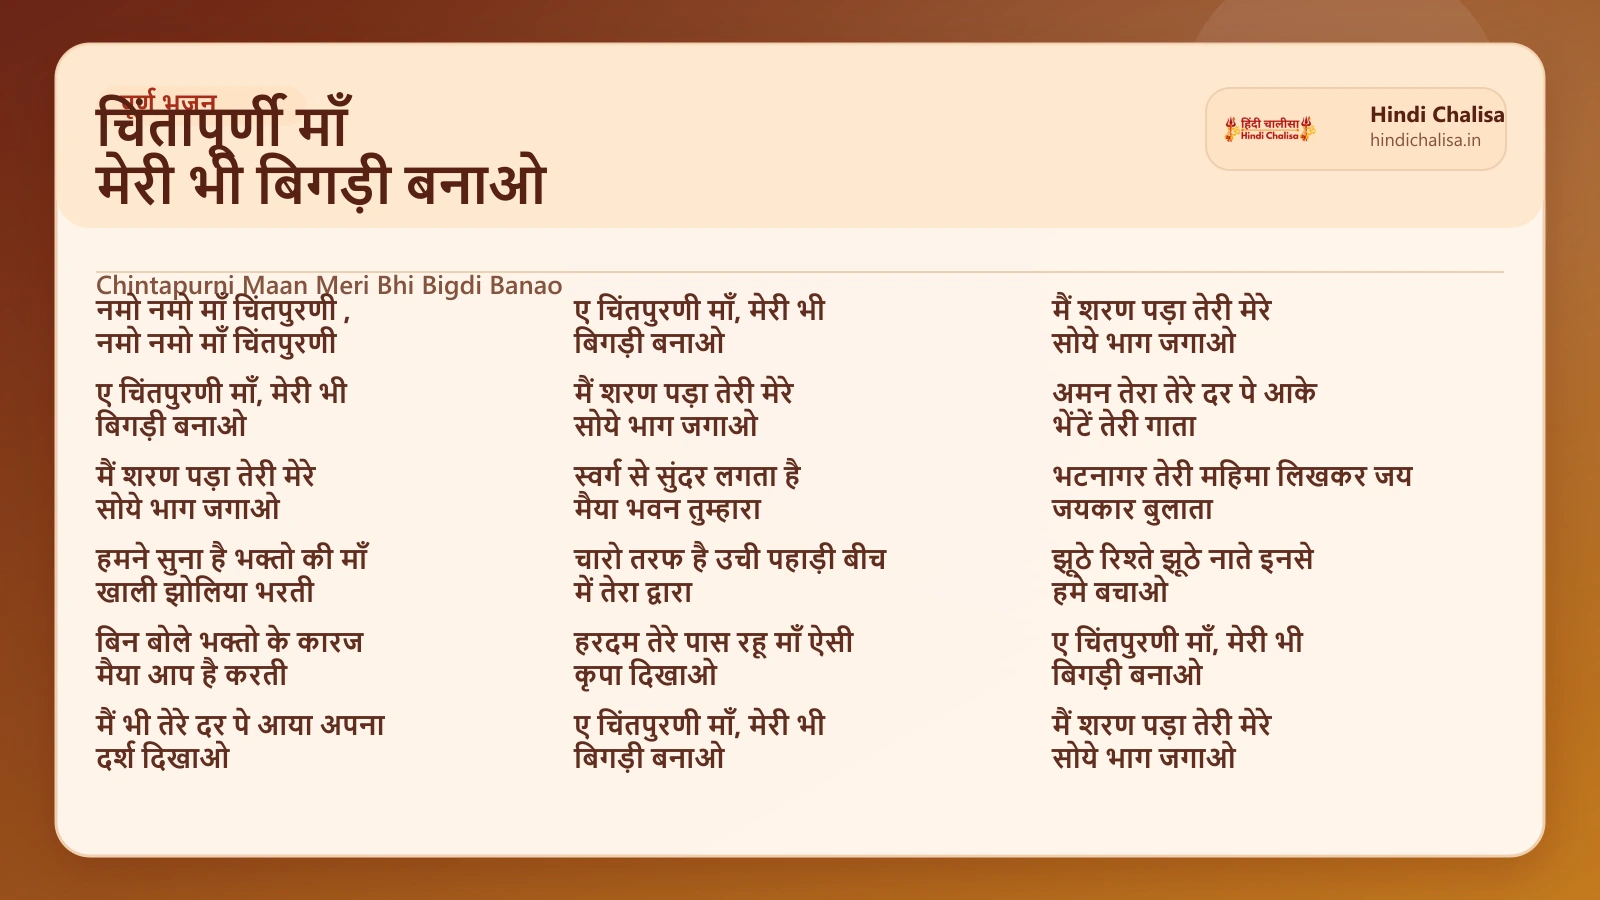 पूर्ण भजन
चिंतापूर्णी माँ
मेरी भी बिगड़ी बनाओ
हिंदी चालीसा
Hindi Chalisa
Hindi Chalisa
hindichalisa.in
Chintapurni Maan Meri Bhi Bigdi Banao
नमो नमो माँ चिंतपुरणी ,
नमो नमो माँ चिंतपुरणी
ए चिंतपुरणी माँ, मेरी भी
बिगड़ी बनाओ
मैं शरण पड़ा तेरी मेरे
सोये भाग जगाओ
हमने सुना है भक्तो की माँ
खाली झोलिया भरती
बिन बोले भक्तो के कारज
मैया आप है करती
मैं भी तेरे दर पे आया अपना
दर्श दिखाओ
ए चिंतपुरणी माँ, मेरी भी
बिगड़ी बनाओ
मैं शरण पड़ा तेरी मेरे
सोये भाग जगाओ
स्वर्ग से सुंदर लगता है
मैया भवन तुम्हारा
चारो तरफ है उची पहाड़ी बीच
में तेरा द्वारा
हरदम तेरे पास रहू माँ ऐसी
कृपा दिखाओ
ए चिंतपुरणी माँ, मेरी भी
बिगड़ी बनाओ
मैं शरण पड़ा तेरी मेरे
सोये भाग जगाओ
अमन तेरा तेरे दर पे आके
भेंटें तेरी गाता
भटनागर तेरी महिमा लिखकर जय
जयकार बुलाता
झूठे रिश्ते झूठे नाते इनसे
हमे बचाओ
ए चिंतपुरणी माँ, मेरी भी
बिगड़ी बनाओ
मैं शरण पड़ा तेरी मेरे
सोये भाग जगाओ